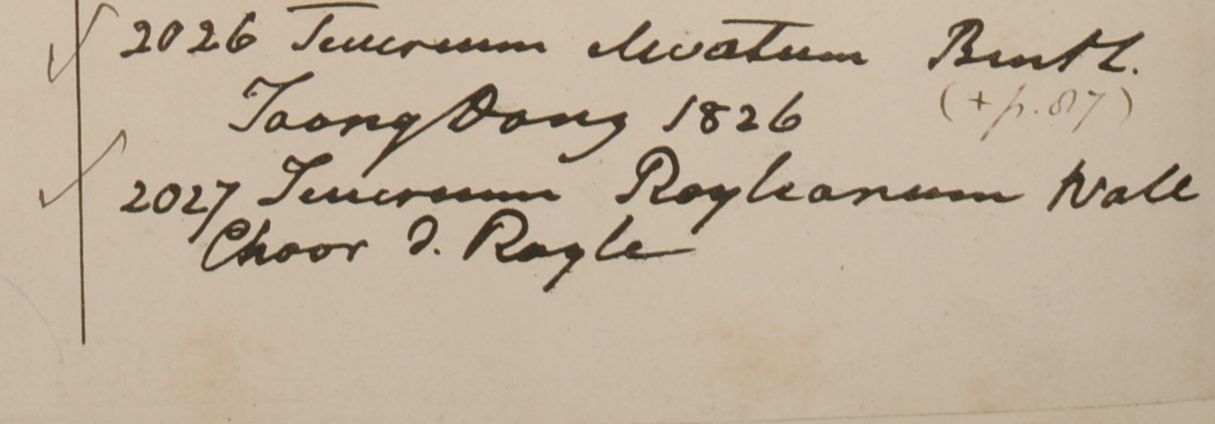 2026 Teucrium elevatum Benth.
Taong Dong 1826
(+ p. 87)
2027 Teucrium Royleanum Wall
Choor D. Royle